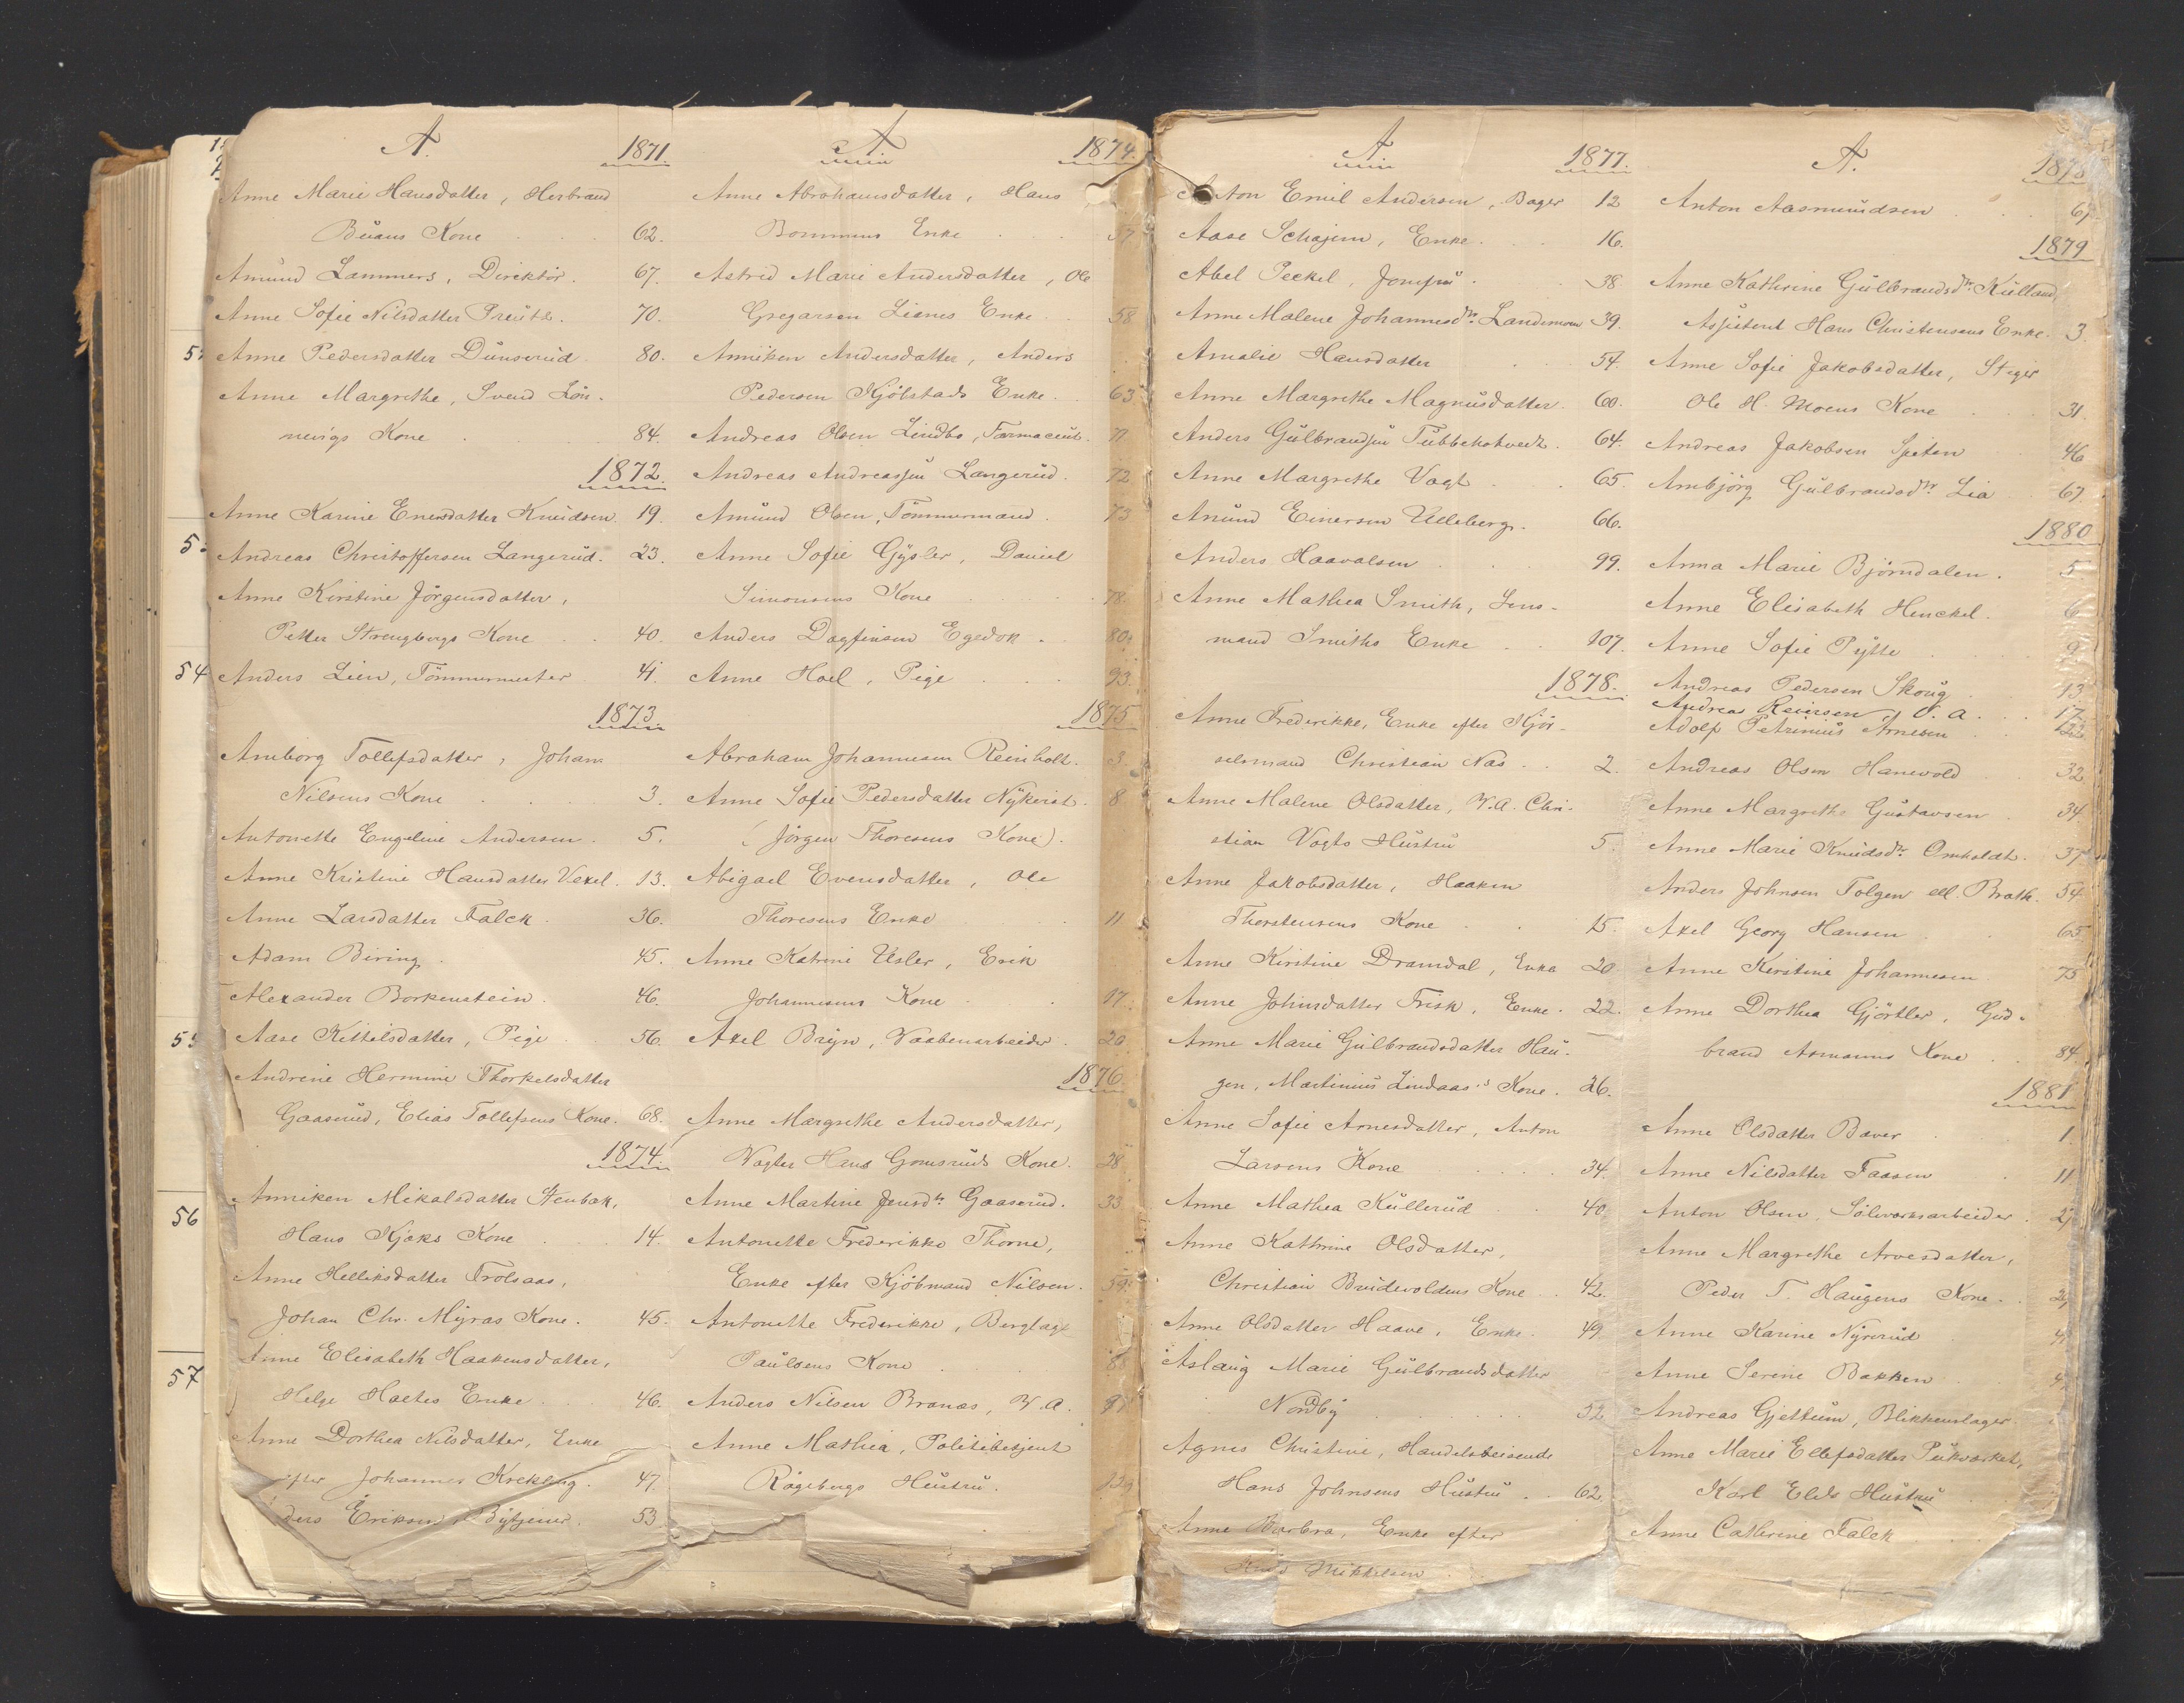 A. 1871.
Anne Marie Hansdatter, Herbrand
Buans Kone 62.
Amund Lammers, Direktör. 67.
Anne Sofie Nilsdatter Preuts. 70.
Anne Pedersdatter Dunserud. 80.
Anne Margrethe, Svend Lön-
nevigs Kone 84.
1872.
Anne Karine Enersdatter Knudsen. 19.
Andreas Christoffersen Langerud. 23.
Anne Kirstine Jörgensdatter,
Petter Strengbergs Kone 40.
54 Anders Lien, Tömmermester 41.
1873
Anborg Tollefsdatter, Johan
Nilsens Kone 3.
Antonette Engeline Andersen. 5.
Anne Kristine Hansdatter Vexel. 13.
Anne Larsdatter Falck. 36.
Adam Biring. 45.
Alexander Borkenstein. 46.
Aase Kittilsdatter, Pige 56.
Andrine Hermine Thorkelsdatter
Gaaserud, Elias Tollefsens Kone. 68.
1874.
56
Anniken Mikalsdatter Stenbæk,
Hans Kjøks Kone 14.
Anne Helliksdatter Trolsaas,
Johan Chr. Myras Kone. 45.
Anne Elisabeth Haakensdatter,
57
Helge Holtes Enke 46.
Anne Dorthea Nilsdatter, Enke
efter Johannes Krekling. 47.
ders Eriksen, Bytjener. 53
A 1874.
Anne Abrahamsdatter, Hans
Bommens Enke 37
Astrid Marie Andersdatter, Ole
Gregarsen Lianes Enke 58
Anniken Andersdatter, Anders
Pedersen Kjölstads Enke. 63
Andreas Olsen Lindbo, Farmaceut. 71
Andreas Andreassen Langerud. 72
Amund Olsen, Tömmermand. 73
Anne Sofie Gysler, Daniel
Simonsens Kone 78.
Anders Dagfinsen Egedok. 80.
Anne Hoel, Pige 93.
1875
Abraham Johannesen Reinholt. 3.
Anne Sofie Pedersdatter Nykvist. 8
(Jörgen Thoresens Kone).
Abigael Evensdatter, Ole
Thoresens Enke 11
Anne Katrine Usler, Erik
Johannesens Kone 17
Axel Bryn, Vaabenarbeider. 20
1876.
Anne Margrethe Andersdatter,
Vagter Hans Gomsruds Kone. 28
Anne Martine Jensdtr Gaaserud. 33
Antonette Frederikke Thorne,
Enke efter Kjöbmand Nilsen. 59.
Antonette Frederikke, Berglage
Paulsens Kone 88
Anders Nilsen Brænas, V.A.
Anne Mathea, Politibetjent
Rögebergs Hustru.
A 1877.
Anton Emil Andersen, Bager 12
Aase Schøjen, Enke. 16.
Abel Peckel, Jomfru. 38
Anne Malene Johannesdtr Landsmon 39.
Amalie Hansdatter 54.
Anne Margrethe Magnusdatter. 60.
Anders Gulbrandsen Tubbehotvedt. 64.
Anne Margrethe Vogt 65.
Anund Einersen Ulleberg. 66.
Anders Haavalsen 99.
Anne Mathea Smith, Lens-
mand Smiths Enke 107.
1878.
Anne Frederikke, Enke efter Kjör-
selsmand Christian Næs 2.
Anne Malene Olsdatter, V.A. Chri-
stian Vogts Hustru 5.
Anne Jakobsdatter, Haaken
Thorstensens Kone 15.
Anne Kirstine Dramdal, Enke 20
Anne Johnsdatter Frisk, Enke. 22.
Anne Marie Gulbrandsdatter Hau-
gen, Martinius Lindaas's Kone. 26.
Anne Sofie Arnesdatter, Anton
Larsens Kone 34.
Anne Mathea Kullerud 40
Anne Kathrine Olsdatter,
Christian Brudevoldens Kone 42.
Anne Olsdatter Haave, Enke. 49.
Aslaug Marie Gulbrandsdatter
Nordby 52
Agnes Christine, Handelsbeisende
Hans Johnsens Hustru 62
Anne Barbra, Enke efter
Mikkelsen
A. 1878
Anton Aasmundsen 67.
1879
Anne Kathrine Gulbrandsdtr Kulland,
Assistent Hans Christensens Enke. 3.
Anne Sofie Jakobsdatter, Stiger
Ole H. Moens Kone 31.
Andreas Jakobsen Speten 46
Ambjörg Gulbrandsdtr Lia 67.
1880
Anna Marie Björndalen. 5
Anne Elisabeth Henckel. 6
Anne Sofie Pytte 9
Andreas Pedersen Skoug 13
Andreas Reiersen, V.A. 17.
Adolf Petrinius Arnesen 22
Andreas Olsen Hanevold 32
Anne Margrethe Gustavsen 34
Anne Marie Knudsdtr Omholdt. 37
Anders Johnsen Tolgen ell. Bratt. 54
Axel Georg Hansen 65
Anne Kirstine Johannesen 75
Anne Dorthea Gjörtler, Gud-
brand Asmanns Kone 84.
1881
Anne Olsdatter Baver 1
Anne Nilsdatter Faasen 11
Anton Olsen, Sölvverksarbeider.
Anne Margrethe Arvesdatter,
Peder T. Haugens Kone.
Anne Karine Nyrerud
Anne Serine Bakken
Andreas Gjettum, Blikkenslager.
Anne Marie Ellefsdatter Pukværket,
Karl Elds Hustru
Anne Cathrine Falck